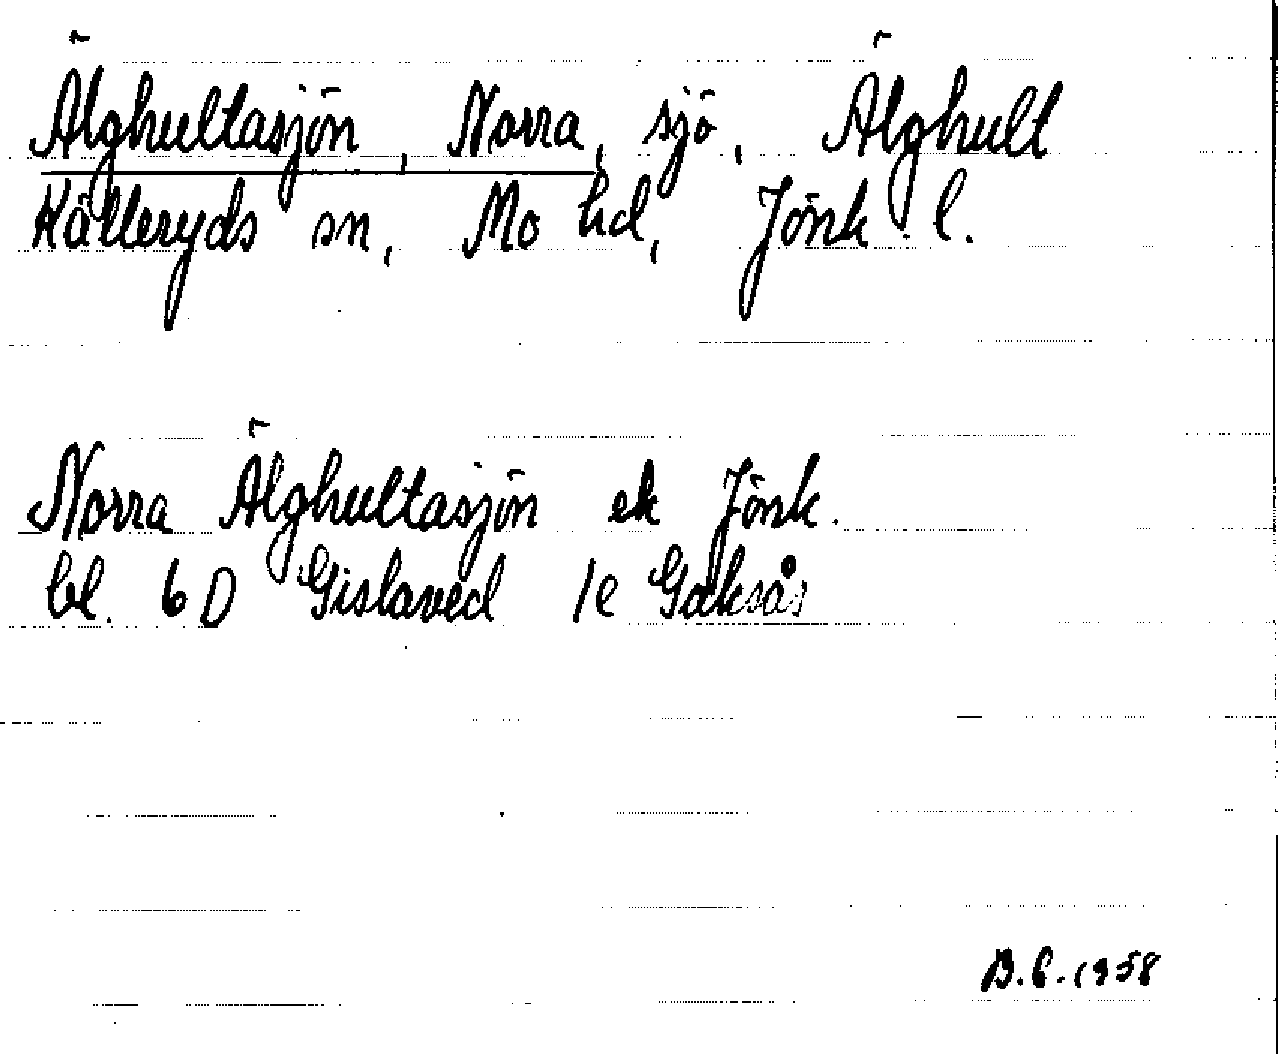 Älghultasjön, Norra, sjö, Älghult
Kålleryds sn, Mo hd, Jönk. l.
Norra Älghultasjön ek Jönk.
bl. 6D Gislaved 1e Gaksås
B.C. 1958